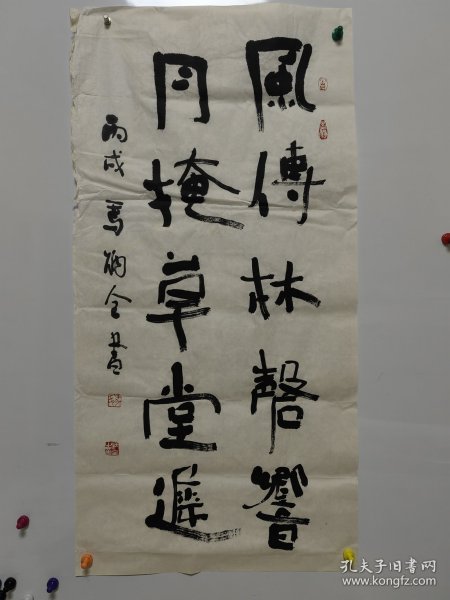 風傳林磬響
月掩草堂遲
丙戌 馬炳全書
孔夫子旧书网
www.kongfz.com